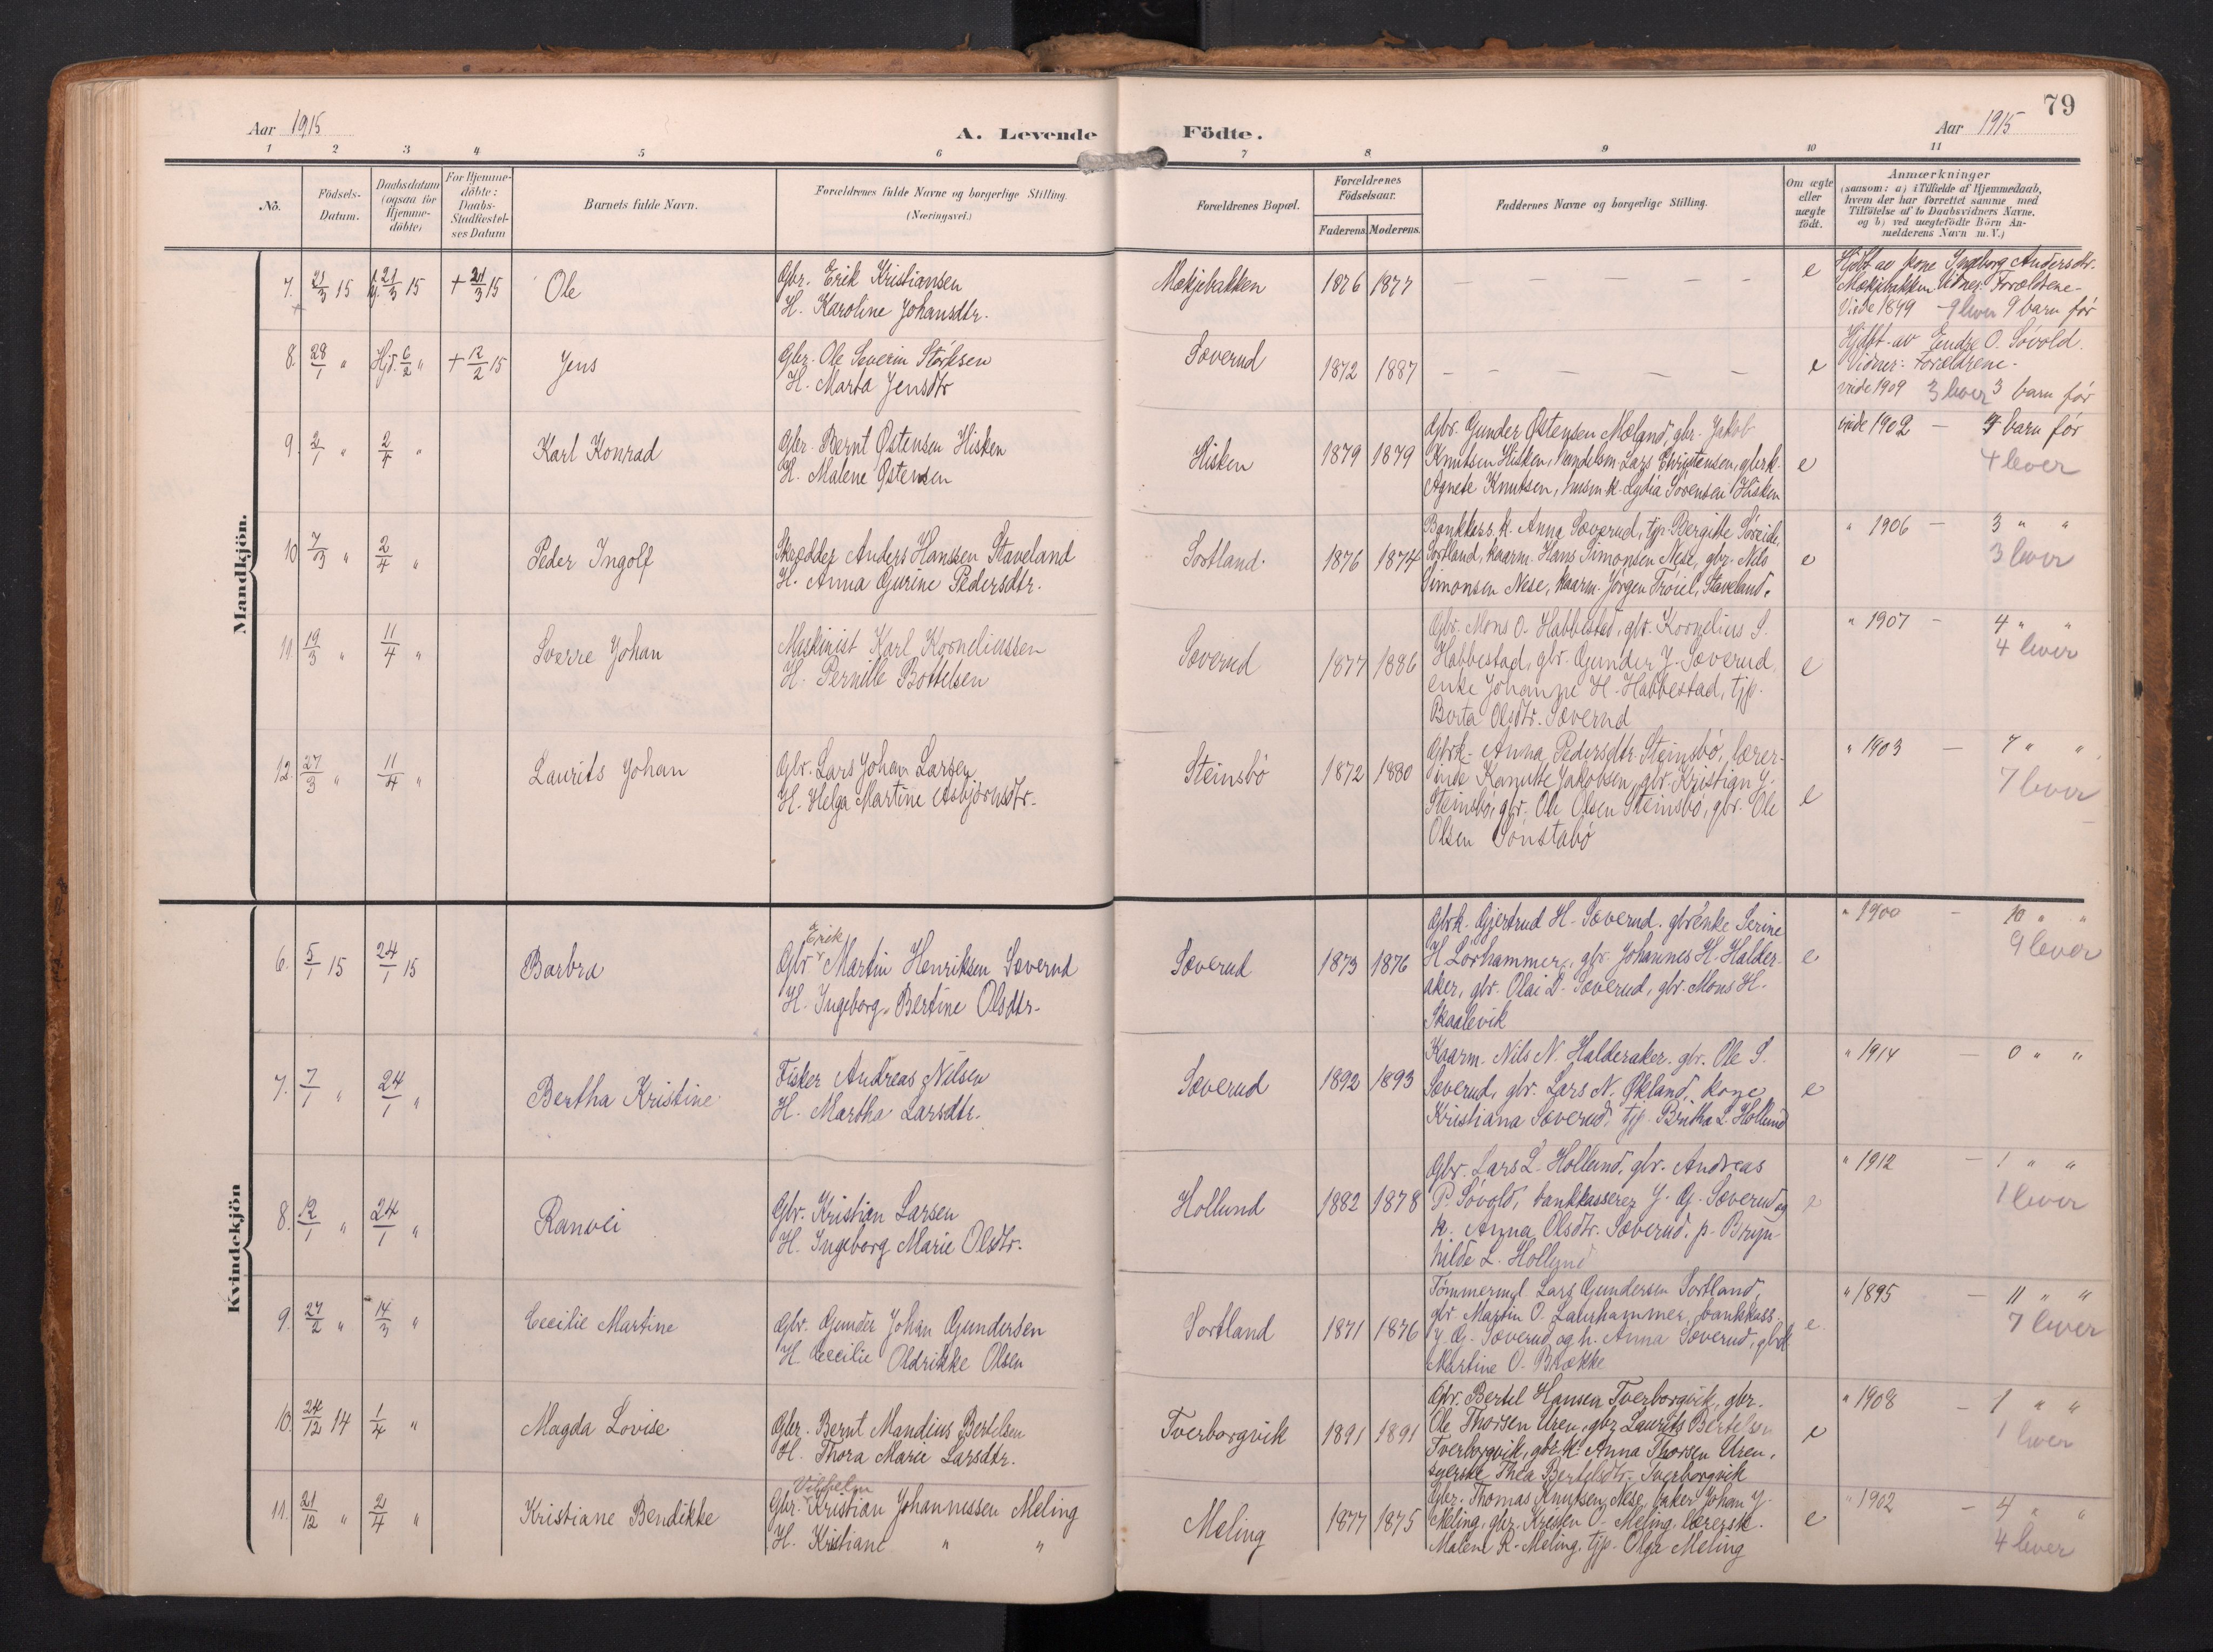 79
Aar 1915
A. Levende
Födte.
Aar 1915
1 2 3 4 5 6 7 8 9 10 11
No.
Födsels-
Datum.
Daabsdatum
(ogsaa for
Hjemme-
döbte)
For Hjemme-
döbte:
Daabs-
Stadfæstel-
ses Datum
Barnets fulde Navn.
Forældrenes fulde Navne og borgerlige Stilling.
(Næringsvei.)
Forældrenes Bopæl.
Forældrenes
Födselsaar.
Faderens. Moderens.
Faddernes Navne og borgerlige Stilling.
Om ægte
eller
uægte
födt.
Anmærkninger
(saasom: a) i Tilfælde af Hjemmedaab,
hvem der har forrettet samme med
Tilföielse af to Daabsvidners Navne.
og b) ved uægtefödte Börn An-
melderens Navn m. V.)
Mandkjön.
7. 21/3 15 21/3 15 + 21/3 15
Ole
Gbr. Erik Kristiansen
H. Karoline Johansdtr.
Mækjebakken
1876 1877
e
Hjdbt av kone Ingeborg Andersdtr.
Mækjebakken. Vidner: Forældrene-
Viede 1899 - 9 lever 9 barn før
8. 28/1 " Hjd. 6/2 " + 12/2 15
Jens
Gbr. Ole Severin Størksen
H. Marta Jensdtr
Sæverud
1872 1887
e
Hjdbt. av Endre O. Søvold.
Vidner: Forældrene-
viede 1909 3 lever 3 barn før
9. 2/1 " 2/4 "
Karl Konrad
Gbr. Bernt Østensen Hisken
H. Malene Østensen
Hisken
1879 1879
Gbr. Gunder Østensen Mæland, gbr. Jakob
Knutsen Hisken, handelsm. Lars Christensen, gbrk.
Agnete Knutsen, husm. k. Lydia Sørensen Hisken
e
viede 1902 - 4 barn før
4 lever
10 7/3 " 2/4 "
Peder Ingolf
Skrædder Anders Hanssen Staveland
H. Anna Gurine Pedersdtr.
Sortland.
1876 1874
Bankkass. k. Anna Sæverud, tjp. Bergitte Søreide
Sortland, kaarm. Hans Simonsen Nese, gbr. Nils
Simonsen Nese, kaarm. Jørgen Trøiel, Staveland.
e
" 1906 - 3 " "
3 lever
11. 19/3 " 11/4 "
Sverre Johan
Maskinist Karl Korneliussen
H. Pernille Bottelsen
Sæverud
1877 1886
Gbr. Mons O. Habbestad, gbr. Kornelius S.
Habbestad, gbr. Gunder J. Sæverud.
enke Johanne H. Habbestad, tjp.
Berta Olsdtr. Sæverud
e
" 1907 - 4 " "
4 lever
12. 27/3 " 11/4 "
Laurits Johan
Gbr. Lars Johan Larsen
H. Helga Martine Asbjørnsdtr-
Steinsbø
1872 1880
Gbrk. Anna Pedersdtr. Steinsbø, lærer-
inde Kanutte Jakobsen, gbr. Kristian J.
Steinsbø, gbr. Ole Olsen Steinsbø, gbr. Ole
Olsen Tonstabø
e
" 1903 - 7 " "
7 lever
Kvindekjön
6. 5/1 15 24/1 15
Barbra
Erik
Gbr Martin Henriksen Sæverud
H. Ingeborg Bertine Olsdtr-
Sæverud
1873 1876
Gbrk. Gjertrud H. Sæverud. gbrenke Serine
H Lørhammer, gbr. Johannes H. Halder-
aker, gbr. Olai D. Sæverud, gbr. Mons H.
Skaalevik
e
" 1900 - 10 " "
9 lever
7. 7/1 " 24/1 "
Bertha Kristine
Fisker Andreas Nilsen
H. Martha Larsdtr.
Sæverud
1892 1893
Kaarm. Nils N. Halderaker. gbr. Ole S.
Sæverud, gbr. Lars N. Økland, kone
Kristiana Sæverud, tjp. Britha L. Hollund
e
" 1914 - 0 " "
8. 12/1 " 24/1 "
Ranvei
Gbr. Kristian Larsen
H. Ingeborg Marie Olsdtr.
Hollund
1882 1878
Gbr. Lars L. Hollund, gbr. Andreas
P. Søvold, bankkasserer J. G. Sæverud og
k. Anna Olsdtr. Sæverud. p. Bryn-
hilde L. Hollund
e
" 1912 - 1 " "
1 lever
9. 27/2 " 14/3 "
Cecilie Martine
Gbr. Gunder Johan Gundersen
H. Cecilie Oldrikke Olsen
Sortland
1871 1876
Tømmerm. Lars Gundersen Sortland,
gbr Martin O. Laurhammer, bankkass.
J. G. Sæverud og h. Anna Sæverud, gbrk
Martine O. Brække
e.
" 1895 - 11 " "
7 lever
10. 24/12 14 1/4 "
Magda Lovise
Gbr. Bernt Mandius Bertelsen
H. Thora Marie Larsdtr.
Tverborgvik
1891 1891
Gbr. Bertel Hansen Tverborgvik, gbr.
Ole Thorsen Uren, gbr. Laurits Bertelsen
Tverborgvik, gbr. k. Anna Thorsen Uren,
syerske Thea Bertelsdtr. Tverborgvik
e
" 1908 - 1 " "
1 lever
11. 21/12 " 2/4 "
Kristiane Bendikke
Vilhelm
Gbr. Kristian Johannessen Meling
H. Kristiane " "
Meling
1877 1875
Gbr. Thomas Knutsen Nese, baker Johan J.
Meling, gbr. Kristen O. Meling, lærersk.
Malene K. Meling, tjp. Olga Meling
e
" 1902 - 4 " "
4 lever